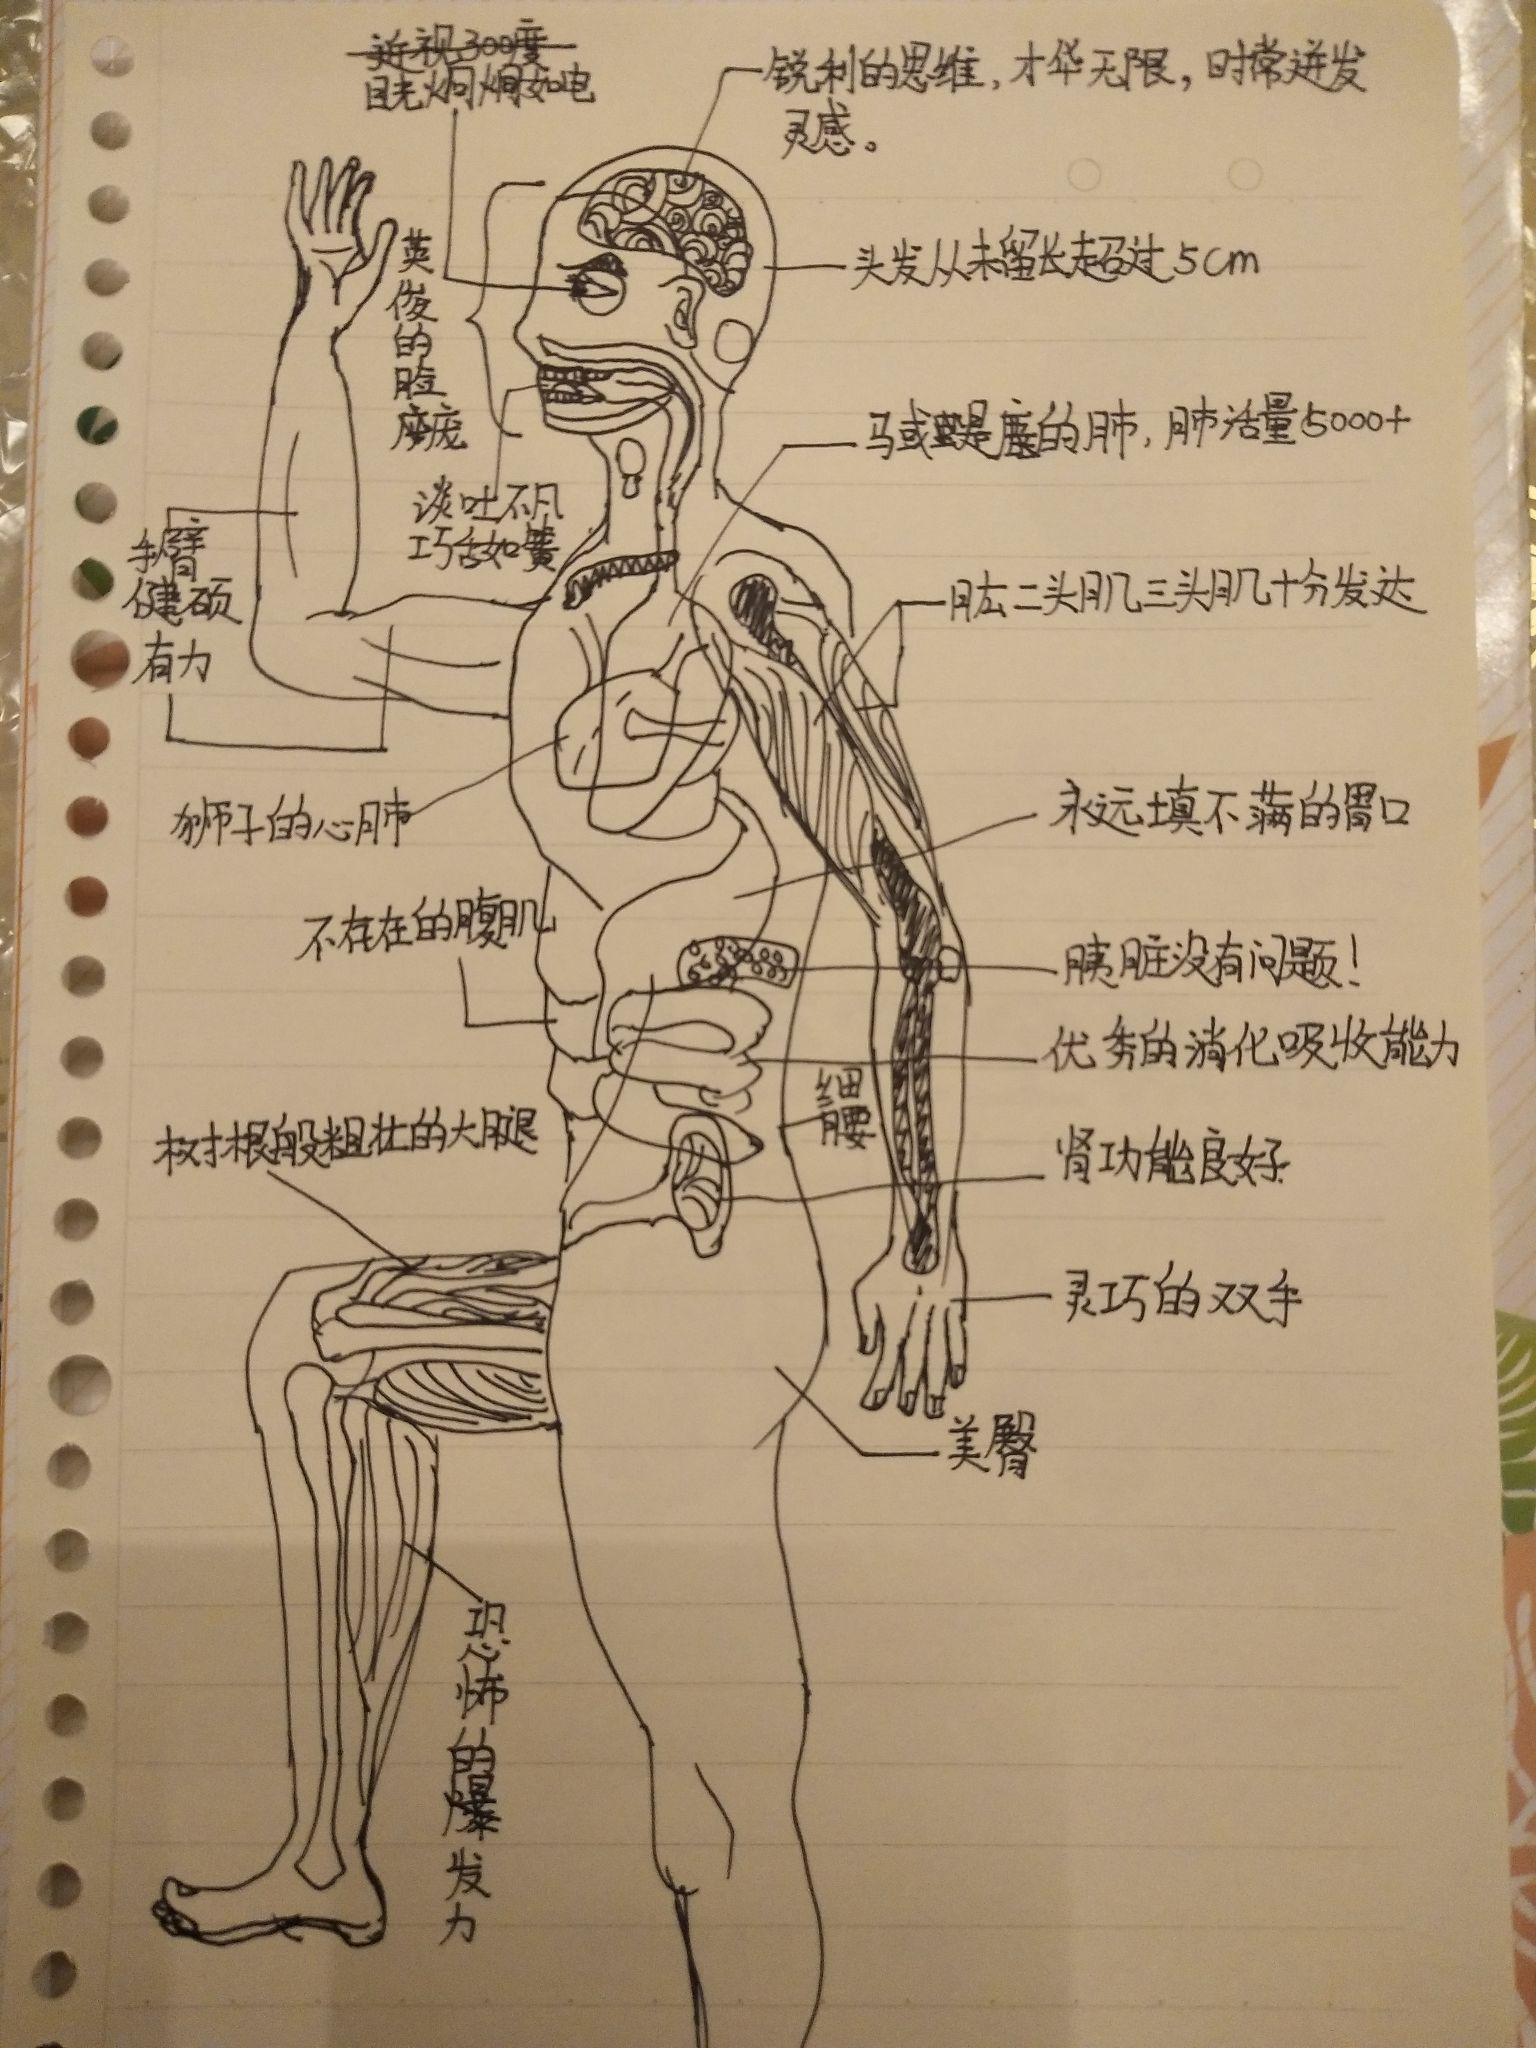 近视300度
目光炯炯如电
锐利的思维,才华无限,时常迸发
灵感。
英俊的脸庞
头发从未留长超过5cm
马或是鹿的肺,肺活量5000+
谈吐不凡
巧舌如簧
手臂
健硕
有力
肱二头肌三头肌十分发达
狮子的心肺
永远填不满的胃口
不存在的腹肌
胰脏没有问题!
优秀的消化吸收能力
细腰
树根般粗壮的大腿
肾功能良好
灵巧的双手
美臀
恐怖的爆发力